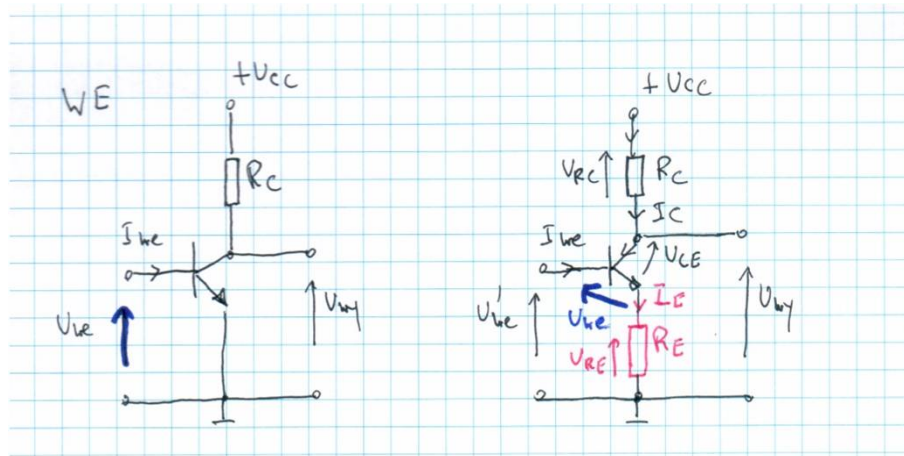 WE
+UCC
RC
Iwe
Uwe
Uwy
+UCC
URC
RC
IC
Iwe
UCE
U'we
Uwe
IE
URE
RE
Uwy